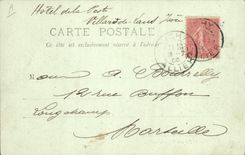 Hotel de la Poste
Villard-de-Lans Isère
CARTE POSTALE
Ce côté est exclusivement réservé à l'adresse
Monsieur A.
12 rue Buffon
Longchamp
Marseille